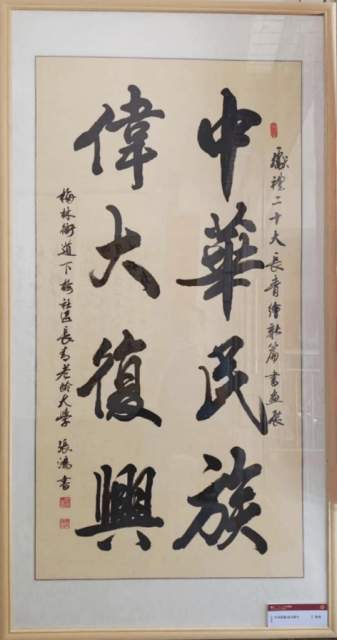 獻禮二十大長青繪新篇書畫展
中華民族
偉大復興
梅林街道下梅社區長青老龄大學 張鴻書